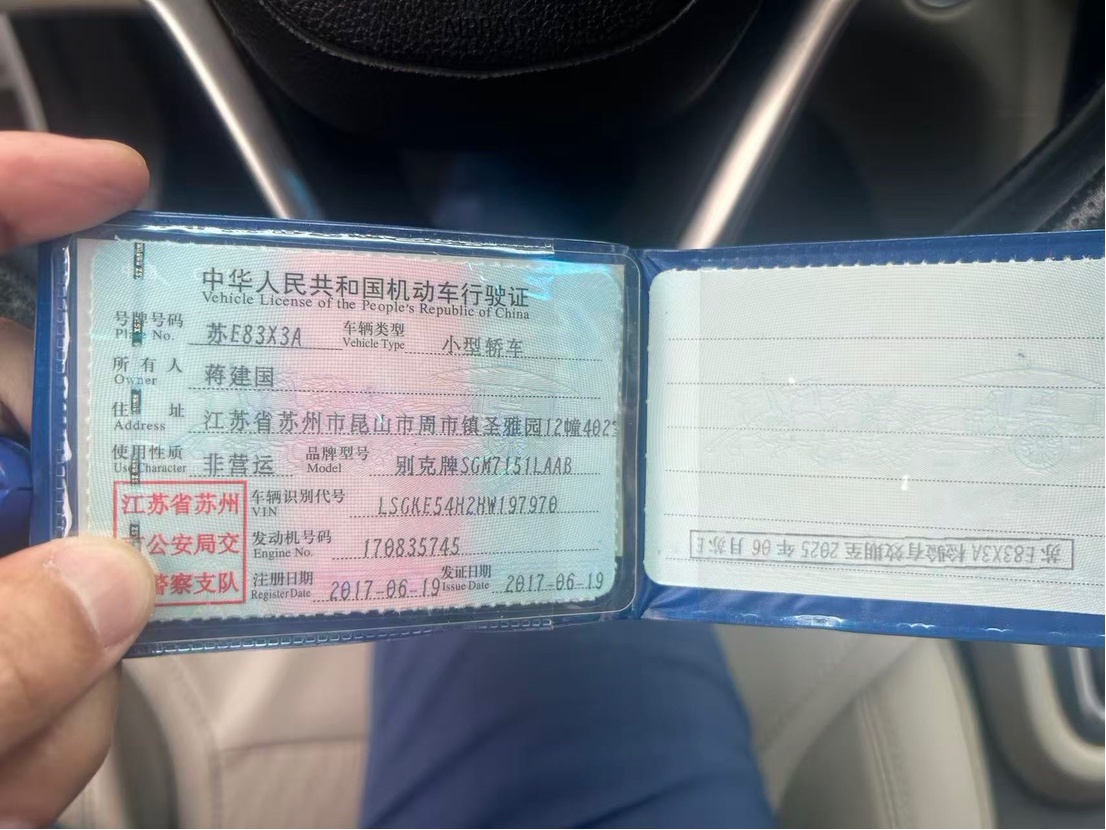 AIRBAG
中华人民共和国机动车行驶证
Vehicle License of the People's Republic of China
号牌号码 苏E83X3A 车辆类型 小型轿车
Plate No. Vehicle Type
所有人 蒋建国
Owner
住址 江苏省苏州市昆山市周市镇圣雅园12幢402
Address
使用性质 非营运 品牌型号 别克牌SGM7151LAAB
Use Character Model
江苏省苏州
公安局交
警察支队
车辆识别代号 LSGKE54H2HW197970
VIN
发动机号码 170835745
Engine No.
注册日期 2017-06-19 发证日期 2017-06-19
Register Date Issue Date
苏E83X3A 检验有效期至 2025 年 06 月 苏E